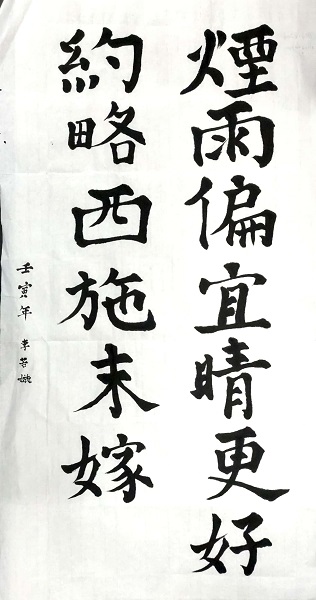 煙雨偏宜晴更好
約略西施末嫁
壬寅年 李若